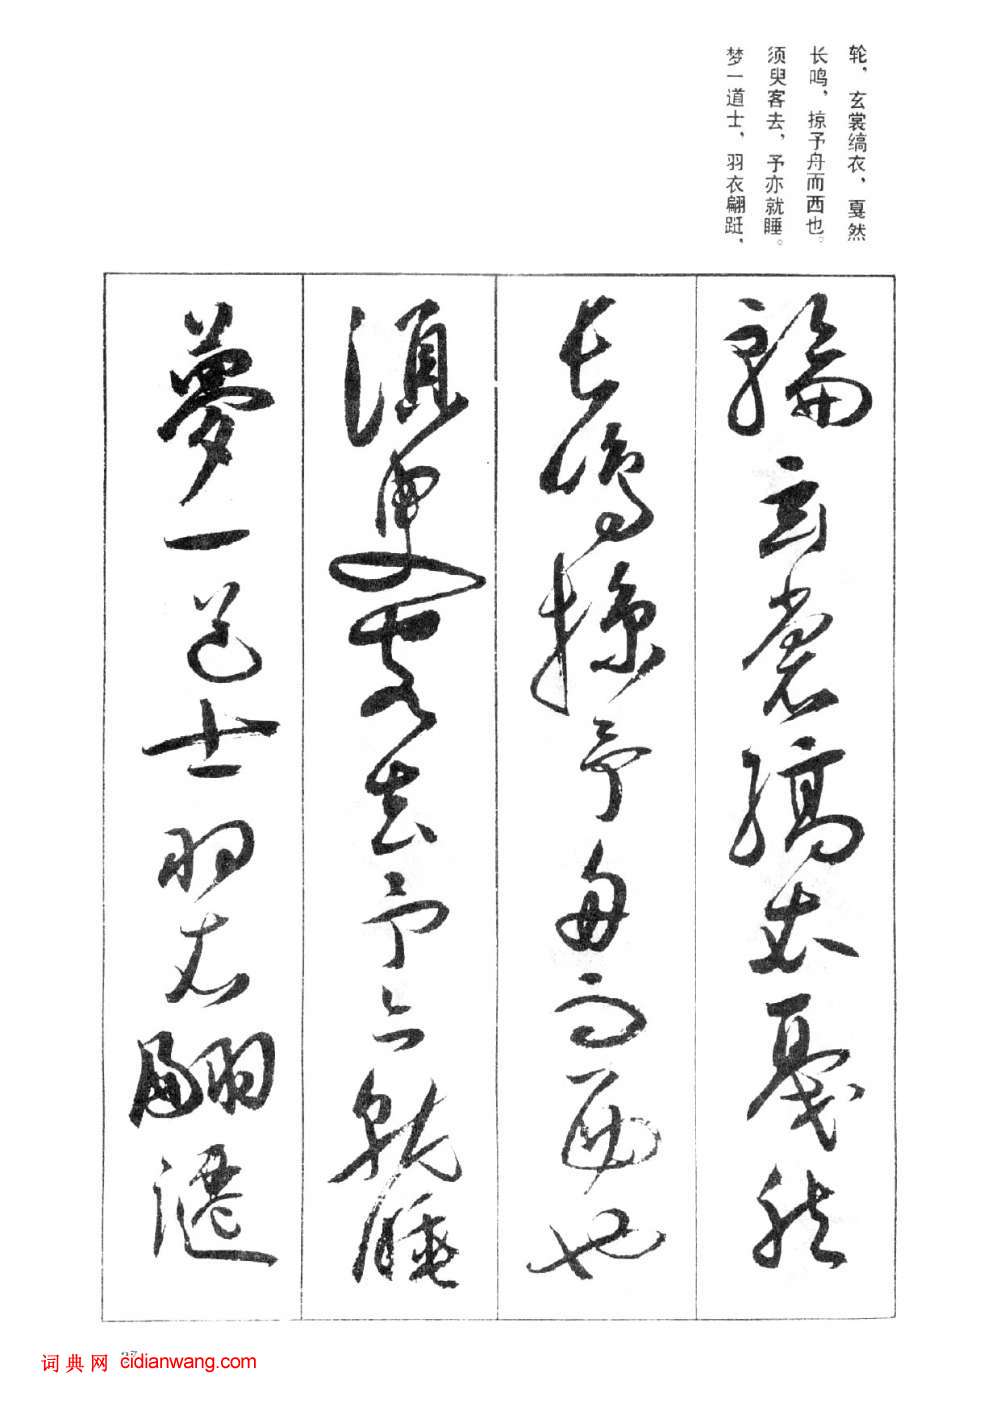 轮，玄裳缟衣，戛然
长鸣，掠予舟而西也。
须臾客去，予亦就睡。
梦一道士，羽衣翩跹，
輪玄裳縞衣戛然
長鳴掠予舟而西也
須臾客去予亦就睡
夢一道士羽衣翩躚
词典网 cidianwang.com